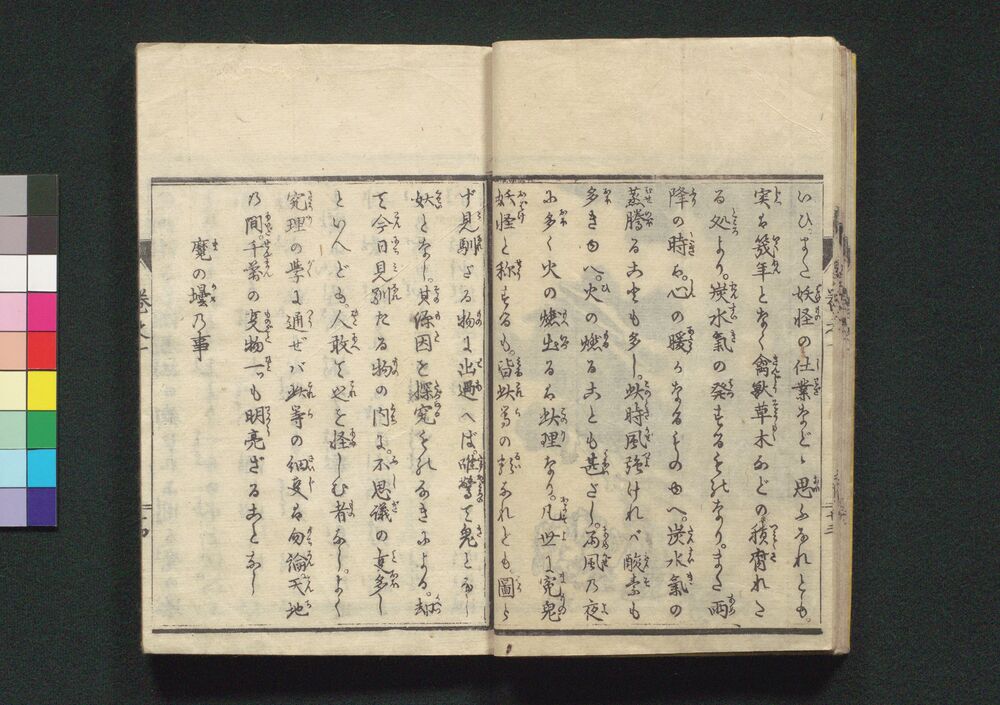 いひ。また妖怪の仕業などゝ思ふなれども。
実は幾年となく禽獣草木などの積腐れた
る処より。炭水氣の発するものなり。また雨
降の時は。心の暖かなるものゆへ。炭水氣の
蒸騰ることも多し。此時風強ければ酸素も
多きゆへ。火の燃ることも甚だし。雨風の夜
に多く火の燃出るは此理なり。凡世に寃鬼
妖怪と称するも。皆此等の類なれども。圖ら
ず見馴ざる物に出遇へば。驚て鬼となし
妖となし。其係因を探究せざるによる。却
て今日見馴たる物の内に。不思議の事多し
といへども。人敢てこれを怪しむ者なし。よく
究理の学に通ぜば此等の細支は勿論天地
乃間。千萬の事物一つも明亮ざることなし
魔の罎乃事
巻之一
十三
巻之一
十四